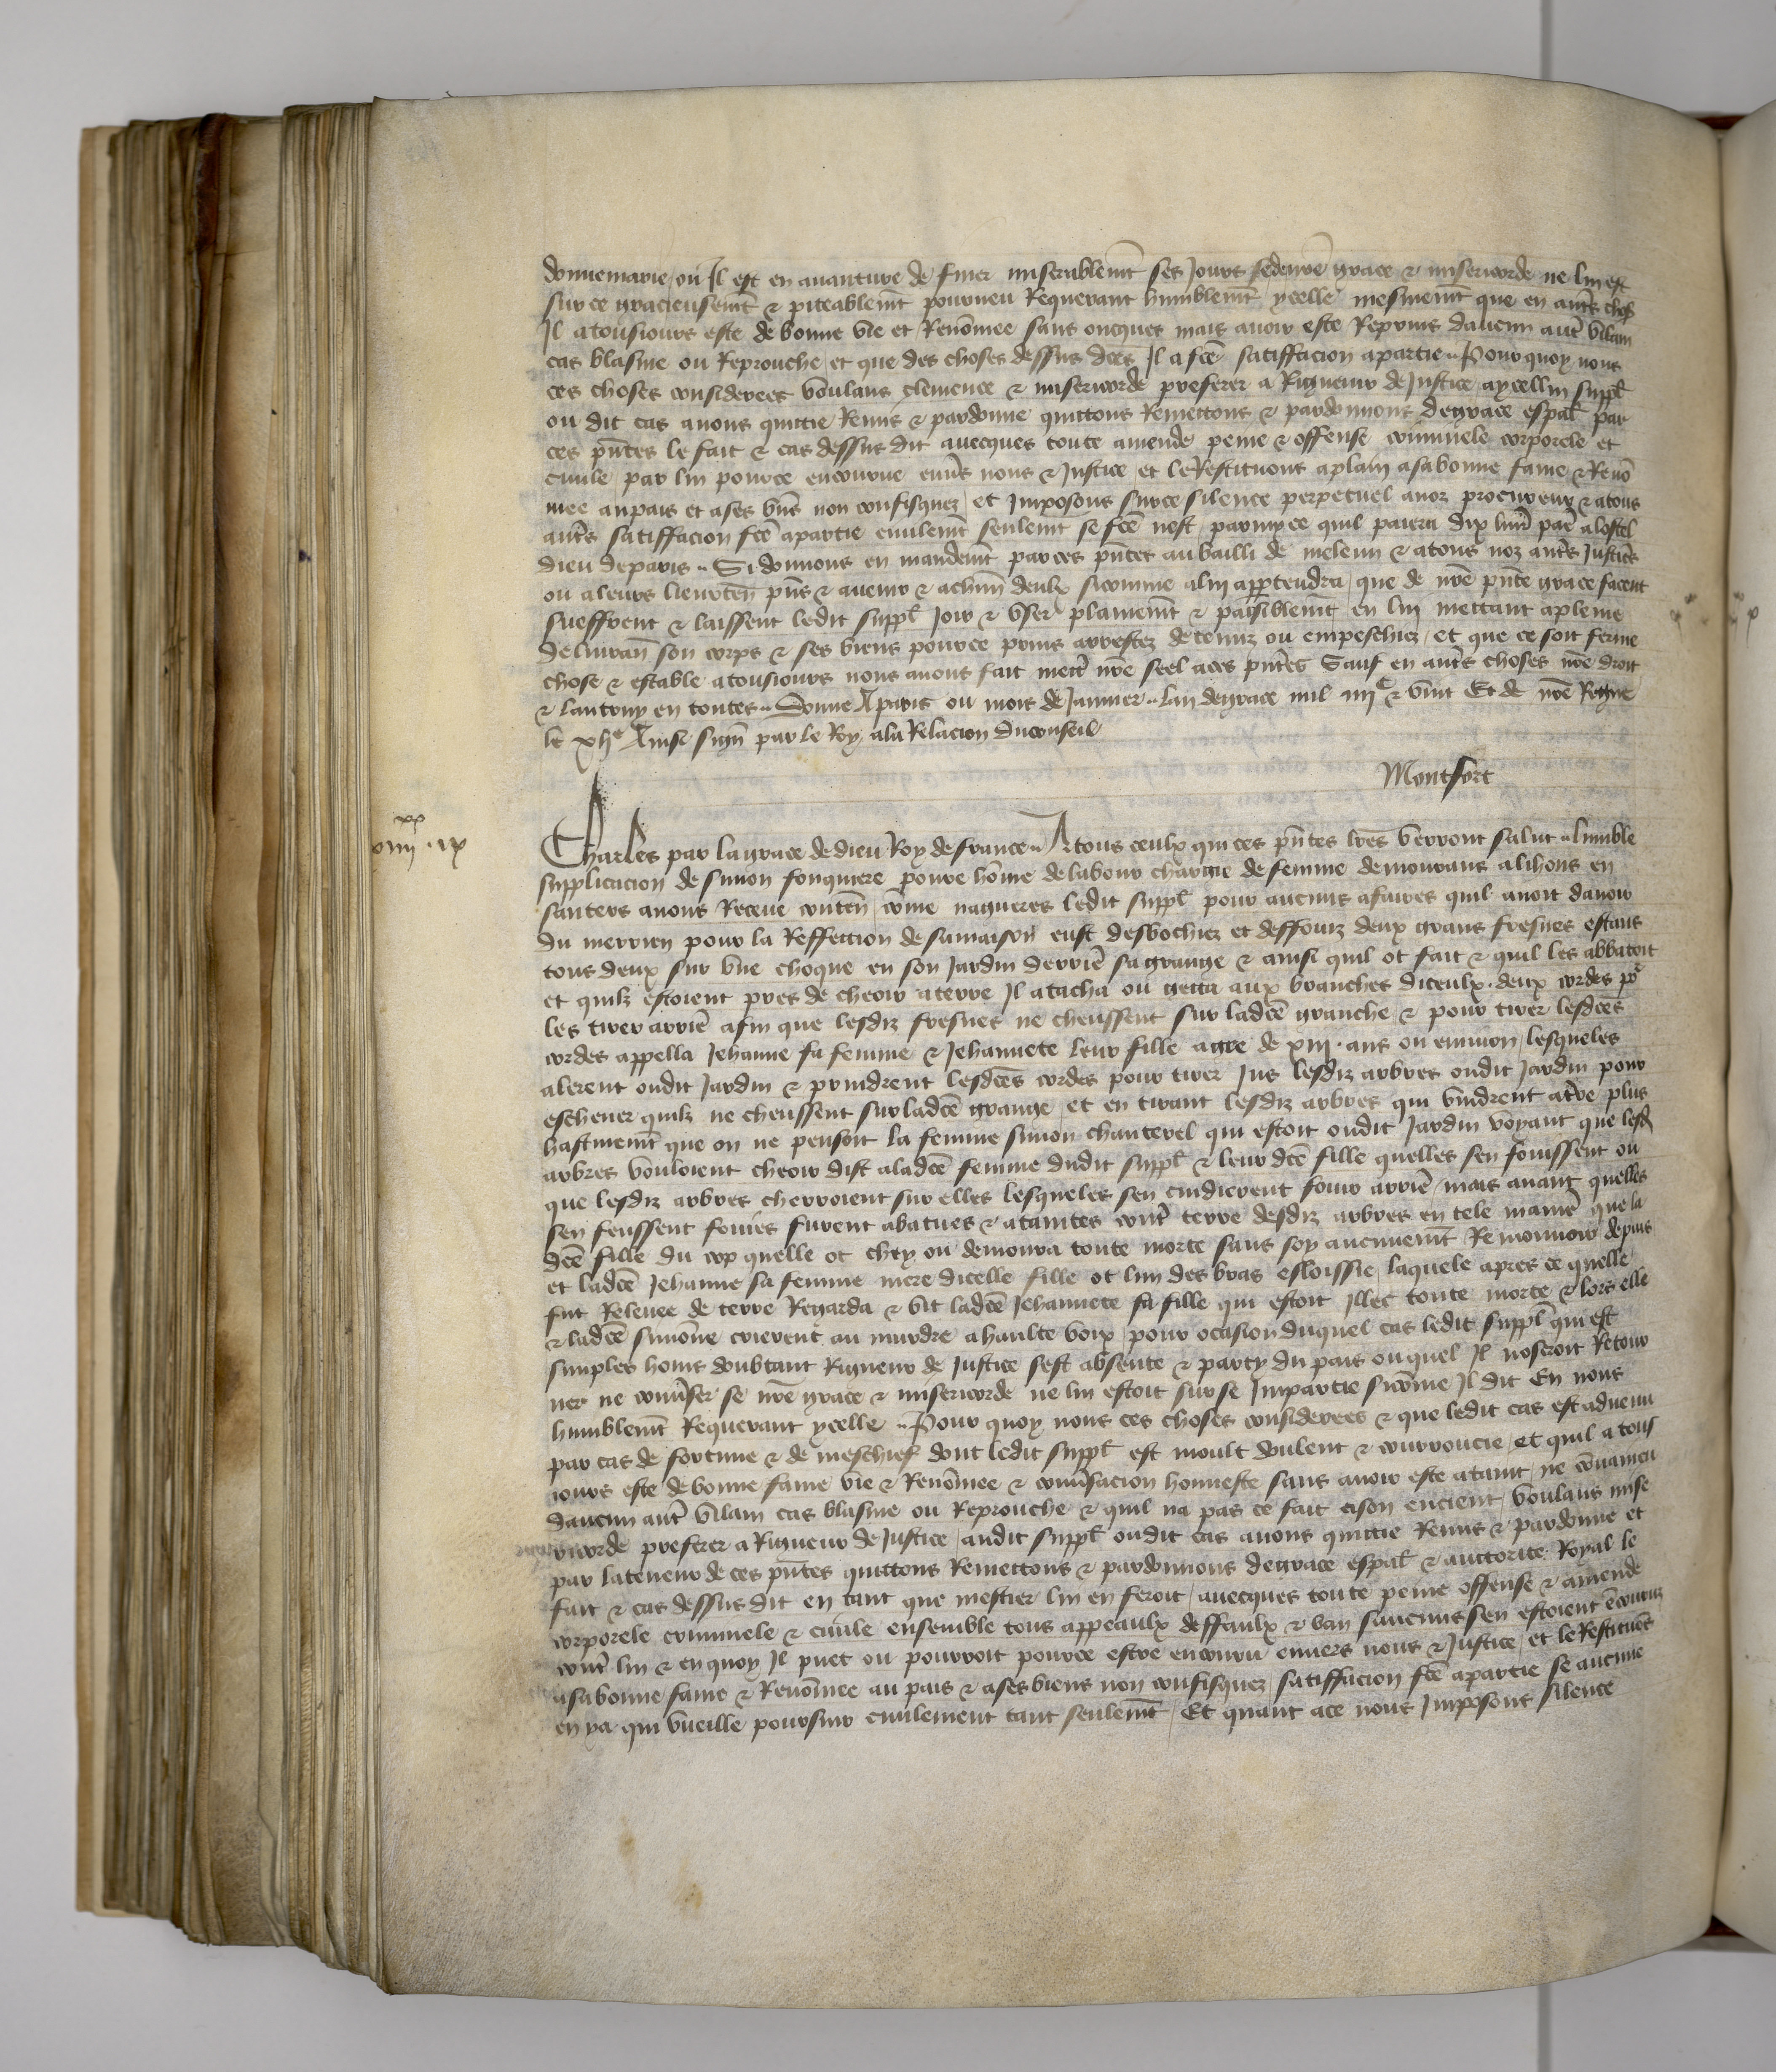 donnemarie ou Il est en auanture de finer miserablemt̃ ses Jours se de nr̃e grace & misericorde ne lui est
sur ce gracieusemt̃ & piteablemt̃ pourueu Requerant humblemt̃ ycelle mesmemt̃ que en autr̃s choses
Il a tousiours este de bonne vie et Renõmee sans oncques mais auoir este Reprins daucun autr̃ vilain
cas blasme ou Reprouche et que des choses dessus dc̃es Il a fcẽ satiffacion apartie .. Pour quoy nous
ces choses considerees voulans clemence & misericorde preferer a Rigueur de Justice aycellui suppl̃
ou dit cas auons quittie Remis & pardonne quittons Remettons & pardonnons degrace espal̃ par
ces pñtes le fait & cas dessus dit auecques toute amende peine & offense criminele corporele et
ciuile par lui pource encourue enũs nous & Justice et le Restituons aplain asabonne fame & Renõ
mee aupais et ases bñs non confisquez et Imposons surce silence perpetuel anoz procureur & atous
autr̃s satiffacion fcẽ apartie ciuilemt̃ seulemt̃ se fcẽ nest parmy ce quil paiera dix liur̃ par̃ alostel
dieu deparis .. Si donnons en mandemt̃ par ces pñtes au bailli de meleun & atous noz autr̃s Justic̃s
ou aleurs lieuxten̄ pñs & auenir & achun̄ deulx sicomme alui appartendra que de nr̃e pñte grace facent
sueffrent & laissent ledit suppl̃ Joir & vser plainemt̃ & paisiblemt̃ en lui mettant apleine
deliuran̄ son corps & ses biens pource prins arrestez detenuz ou empeschiez et que ce soit ferme
chose & estable atousiours nous auons fait mettr̃ nr̃e seel aces pñtes Sauf en autr̃s choses nr̃e droit
& lautruy en toutes .. Donne A paris ou mois de Januier .. lan degrace mil iiijc & vint Et de nr̃e Regne
le xlje Ainsi sign̄ par le Roy ala Relacion du conseil
Montfort
iiijxx .ix
Charles par lagrace de dieu Roy de france .. A tous ceulx qui ces pñtes lrẽs verront salut .. lumble
supplicacion de simon fouquiere poure hõme delabour chargie de femme demourans alihons en
santers auons Receue conten̄ cõme nagueres ledit suppl̃ pour aucuns afaires quil auoit dauoir
du merrien pour la Reffection de samaison eust desrochiez et deffouiz deux grans fresnes estans
tous deux sur vne choque en son Jardin derrier̃ sagrange & ainsi quil ot fait & quil les abbatoit
et quilz estoient pres de cheoir aterre Il atacha ou getta aux branches diceulx .deux cordes por
les tirer arrier̃ afin que lesdiz fresnes ne cheussent sur ladcẽ granche & pour tirer lesdcẽs
cordes appella Jehanne sa femme & Jehannete leur fille agee de xiij .ans ou enuiron lesqueles
alerent oudit Jardin & prindrent lesdcẽs cordes pour tirer Jus lesdiz arbres oudit Jardin pour
escheuer quilz ne cheussent surladcẽ grange et en tirant lesdiz arbres qui vindrent atr̃re plus
hastiuemt̃ que on ne pensoit la femme simon chanterel qui estoit oudit Jardin voyant que lesd̃
arbres vouloient cheoir dist aladcẽ femme dudit suppl̃ & leur dcẽ fille quelles sen fouissent ou
que lesdiz arbres cherroient sur elles lesqueles sen cuidierent fouir arrier̃ mais auant quelles
sen feussent fouies furent abatues & ataintes contr̃ terre desdiz arbres en tele manier̃ que la
dcẽ fille du cop quelle ot chey ou demoura toute morte sans soy aucunemt̃ Remouuoir depuis
et ladcẽ Jehanne sa femme mere dicelle fille ot lun des bras esloissie laquele apres ce quelle
fut Releuee de terre Regarda & vit ladcẽ Jehannete sa fille qui estoit Illec toute morte & lors elle
& ladcẽ simõne crierent au murdre ahaulte voix pour ocasion duquel cas ledit suppl̃ qui est
simples homs doubtant Rigueur de Justice sest absente & party du pais ouquel Il noseroit Retour
ner ne conũser se nr̃e grace & misericorde ne lui estoit surse Impartie sicõme Il dit En nous
humblemt̃ Requerant ycelle .. Pour quoy nous ces choses considerees & que ledit cas est aduenu
par cas de fortune & de meschief dont ledit suppl̃ est moult doulent & courroucie et quil a tous
iours este de bonne fame vie & Renõmee & conũsacion honneste sans auoir este ataint ne cõuaincu
daucun autr̃ vilain cas blasme ou Reprouche & quil na pas ce fait ason encient voulans mise
ricorde preferer a Rigueur de Justice audit suppl̃ oudit cas auons quittie Remis & pardonne et
par lateneur de ces pñtes quittons Remettons & pardonnons degrace espal̃ & auctorite Royal le
fait & cas dessus dit en tant que mestier lui en seroit auecques toute peine offense & amende
corporele criminele & ciuile ensemble tous appeaulx deffaulx & ban saucuns sen estoient ẽsuiuiz
contr̃ lui & en quoy Il puet ou pourroit pource estre encouru enuers nous & Justice et le Restituõs
asabonne fame & Renõmee au pais & ases biens non confisquez satiffacion fcẽ apartie se aucune
en ya qui vueille poursuir ciuilement tant seulemt̃ Et quant ace nous Imposons silence